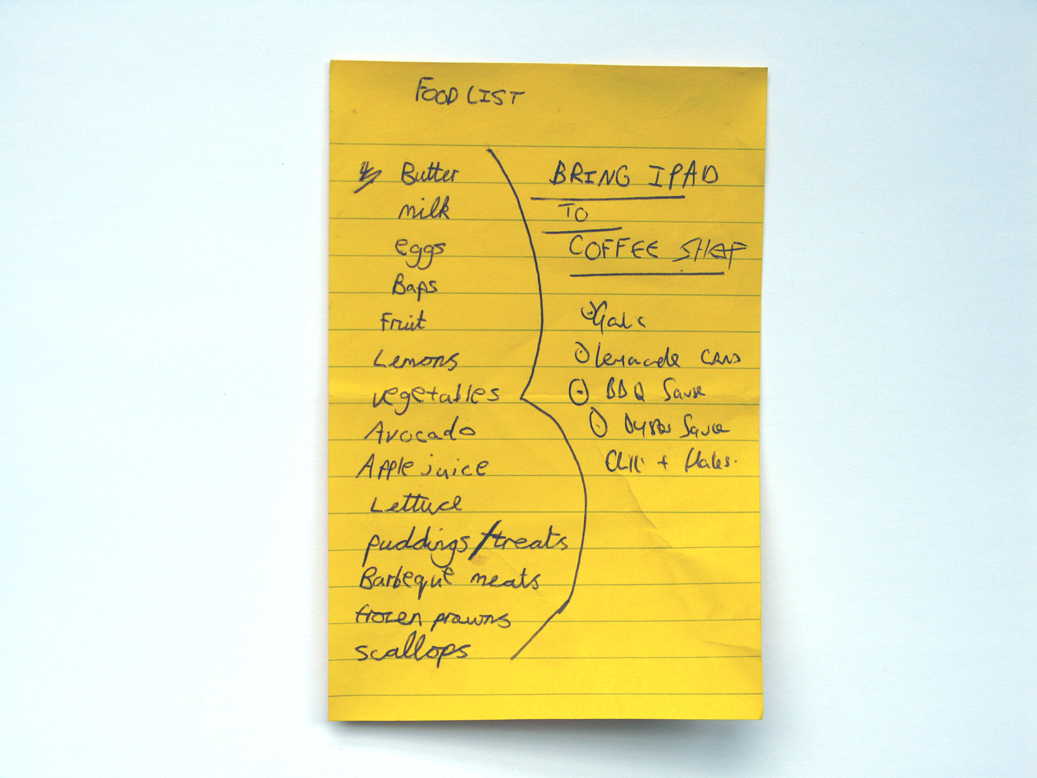 FOOD LIST
Butter
milk
eggs
Baps
Fruit
Lemons
vegetables
Avocado
Apple juice
Lettuce
puddings/treats
Barbeque meats
frozen prawns
scallops
BRING IPAD
TO
COFFEE SHOP
Garlic
Lemonade CANS
BBQ Sauce
Oyster Sauce